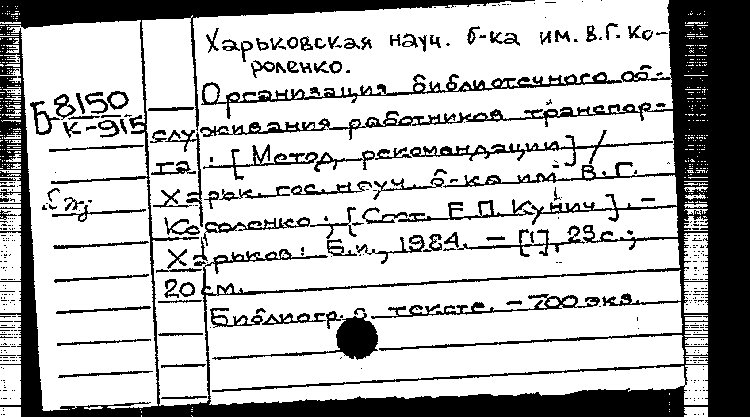 Харьковская науч. б-ка им. В.Г. Ко-
роленко.
Организация библиотечного об-
Б 8150
К-915
служивания работников транспор-
та: [Метод. рекомандации] /
Харьк. гос. науч. б-ка им. В.Г.
Короленко; [Сост. Е.П. Кунич]. –
Харьков: Б.и., 1984. – [1], 29 с.;
20 см.
Библиогр. в тексте. – 700 экз.